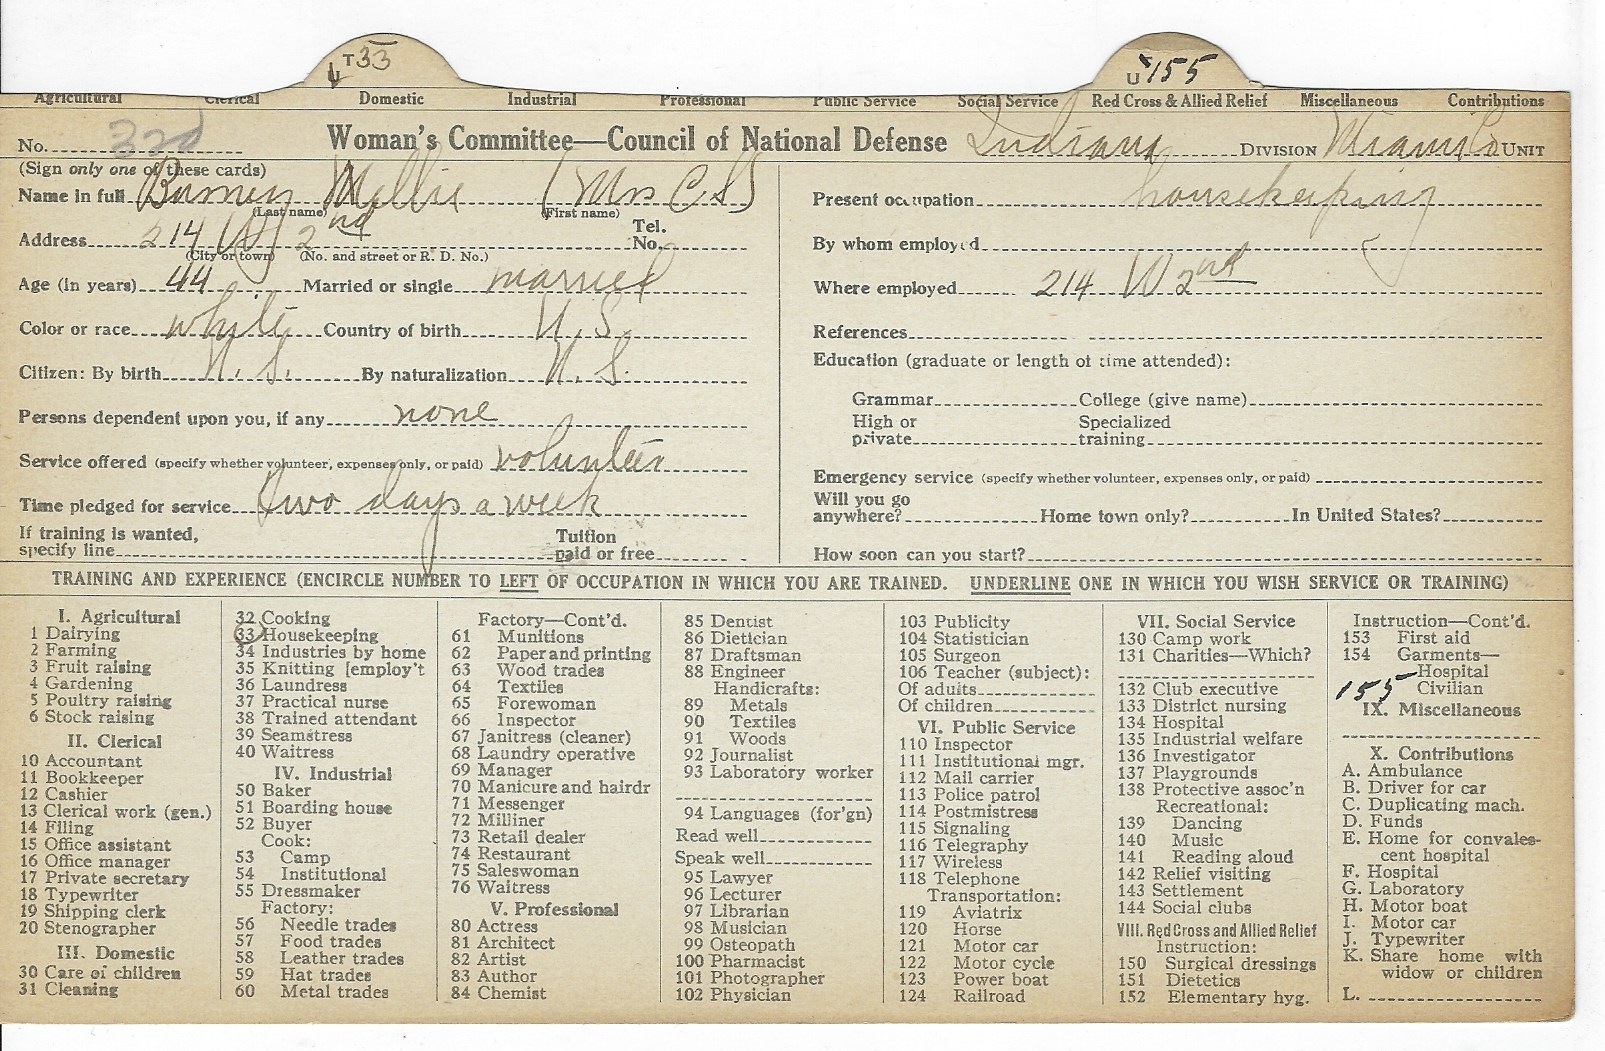 T 33
U 155
Agricultural Clerical Domestic Industrial Professional Public Service Social Service Red Cross & Allied Relief Miscellaneous Contributions
No. 33d Woman's Committee—Council of National Defense Indiana DIVISION Miami Co UNIT
(Sign only one of these cards)
Name in full Mellie (Mrs C S)
(Last name) (First name)
Address 214 W 2nd Tel. No.
(City or town) (No. and street or R. D. No.)
Age (in years) 44 Married or single married
Color or race white Country of birth U.S.
Citizen: By birth U.S. By naturalization U.S.
Persons dependent upon you, if any none
Service offered (specify whether volunteer, expenses only, or paid) volunteer
Time pledged for service two days a week
If training is wanted, specify line Tuition paid or free
Present occupation housekeeping
By whom employed
Where employed 214 W 2nd
References
Education (graduate or length of time attended):
Grammar College (give name)
High or private Specialized training
Emergency service (specify whether volunteer, expenses only, or paid)
Will you go anywhere? Home town only? In United States?
How soon can you start?
TRAINING AND EXPERIENCE (ENCIRCLE NUMBER TO LEFT OF OCCUPATION IN WHICH YOU ARE TRAINED. UNDERLINE ONE IN WHICH YOU WISH SERVICE OR TRAINING)
I. Agricultural
1 Dairying
2 Farming
3 Fruit raising
4 Gardening
5 Poultry raising
6 Stock raising
II. Clerical
10 Accountant
11 Bookkeeper
12 Cashier
13 Clerical work (gen.)
14 Filing
15 Office assistant
16 Office manager
17 Private secretary
18 Typewriter
19 Shipping clerk
20 Stenographer
III. Domestic
30 Care of children
31 Cleaning
32 Cooking
33 Housekeeping
34 Industries by home
35 Knitting [employ't
36 Laundress
37 Practical nurse
38 Trained attendant
39 Seamstress
40 Waitress
IV. Industrial
50 Baker
51 Boarding house
52 Buyer
Cook:
53 Camp
54 Institutional
55 Dressmaker
Factory:
56 Needle trades
57 Food trades
58 Leather trades
59 Hat trades
60 Metal trades
Factory—Cont'd.
61 Munitions
62 Paper and printing
63 Wood trades
64 Textiles
65 Forewoman
66 Inspector
67 Janitress (cleaner)
68 Laundry operative
69 Manager
70 Manicure and hairdr
71 Messenger
72 Milliner
73 Retail dealer
74 Restaurant
75 Saleswoman
76 Waitress
V. Professional
80 Actress
81 Architect
82 Artist
83 Author
84 Chemist
85 Dentist
86 Dietician
87 Draftsman
88 Engineer
Handicrafts:
89 Metals
90 Textiles
91 Woods
92 Journalist
93 Laboratory worker
94 Languages (for'gn)
Read well
Speak well
95 Lawyer
96 Lecturer
97 Librarian
98 Musician
99 Osteopath
100 Pharmacist
101 Photographer
102 Physician
103 Publicity
104 Statistician
105 Surgeon
106 Teacher (subject):
Of adults
Of children
VI. Public Service
110 Inspector
111 Institutional mgr.
112 Mail carrier
113 Police patrol
114 Postmistress
115 Signaling
116 Telegraphy
117 Wireless
118 Telephone
Transportation:
119 Aviatrix
120 Horse
121 Motor car
122 Motor cycle
123 Power boat
124 Railroad
VII. Social Service
130 Camp work
131 Charities—Which?
132 Club executive
133 District nursing
134 Hospital
135 Industrial welfare
136 Investigator
137 Playgrounds
138 Protective assoc'n
Recreational:
139 Dancing
140 Music
141 Reading aloud
142 Relief visiting
143 Settlement
144 Social clubs
VIII. Red Cross and Allied Relief
Instruction:
150 Surgical dressings
151 Dietetics
152 Elementary hyg.
Instruction—Cont'd.
153 First aid
154 Garments—
Hospital
155 Civilian
IX. Miscellaneous
X. Contributions
A. Ambulance
B. Driver for car
C. Duplicating mach.
D. Funds
E. Home for convales-
cent hospital
F. Hospital
G. Laboratory
H. Motor boat
I. Motor car
J. Typewriter
K. Share home with
widow or children
L.